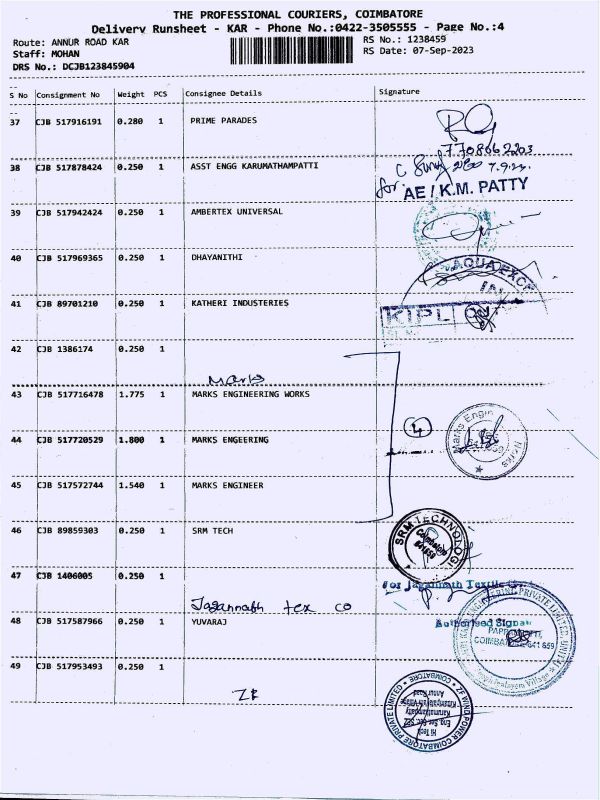 THE PROFESSIONAL COURIERS, COIMBATORE
Delivery Runsheet - KAR - Phone No.:0422-3505555 - Page No.:4
Route: ANNUR ROAD KAR
RS No.: 1238459
Staff: MOHAN
RS Date: 07-Sep-2023
DRS No.: DCJB123845904
S No Consignment No Weight PCS Consignee Details Signature
37 CJB 517916191 0.280 1 PRIME PARADES
7708662203
38 CJB 517878424 0.250 1 ASST ENGG KARUMATHAMPATTI
for AE / K.M. PATTY
39 CJB 517942424 0.250 1 AMBERTEX UNIVERSAL
40 CJB 517969365 0.250 1 DHAYANITHI
AQUA EXCE
41 CJB 89701210 0.250 1 KATHERI INDUSTERIES
KIPL
42 CJB 1386174 0.250 1
Marks
43 CJB 517716478 1.775 1 MARKS ENGINEERING WORKS
4
44 CJB 517720529 1.800 1 MARKS ENGEERING
Marks Engin Works
45 CJB 517572744 1.540 1 MARKS ENGINEER
46 CJB 89859303 0.250 1 SRM TECH
SRM TECHNOLOGI
Coimbatore
641659
47 CJB 1406005 0.250 1
For Jagannath Textile
Jagannath tex co
48 CJB 517587966 0.250 1 YUVARAJ
Authorised Signat
COIMBATORE 641 659
49 CJB 517953493 0.250 1
ZF
ZF WIND POWER COIMBATORE PRIVATE LIMITED
COIMBATORE
Hi Tech
Eng Sec Bec SEZ
Karumathampatty
Annur Road